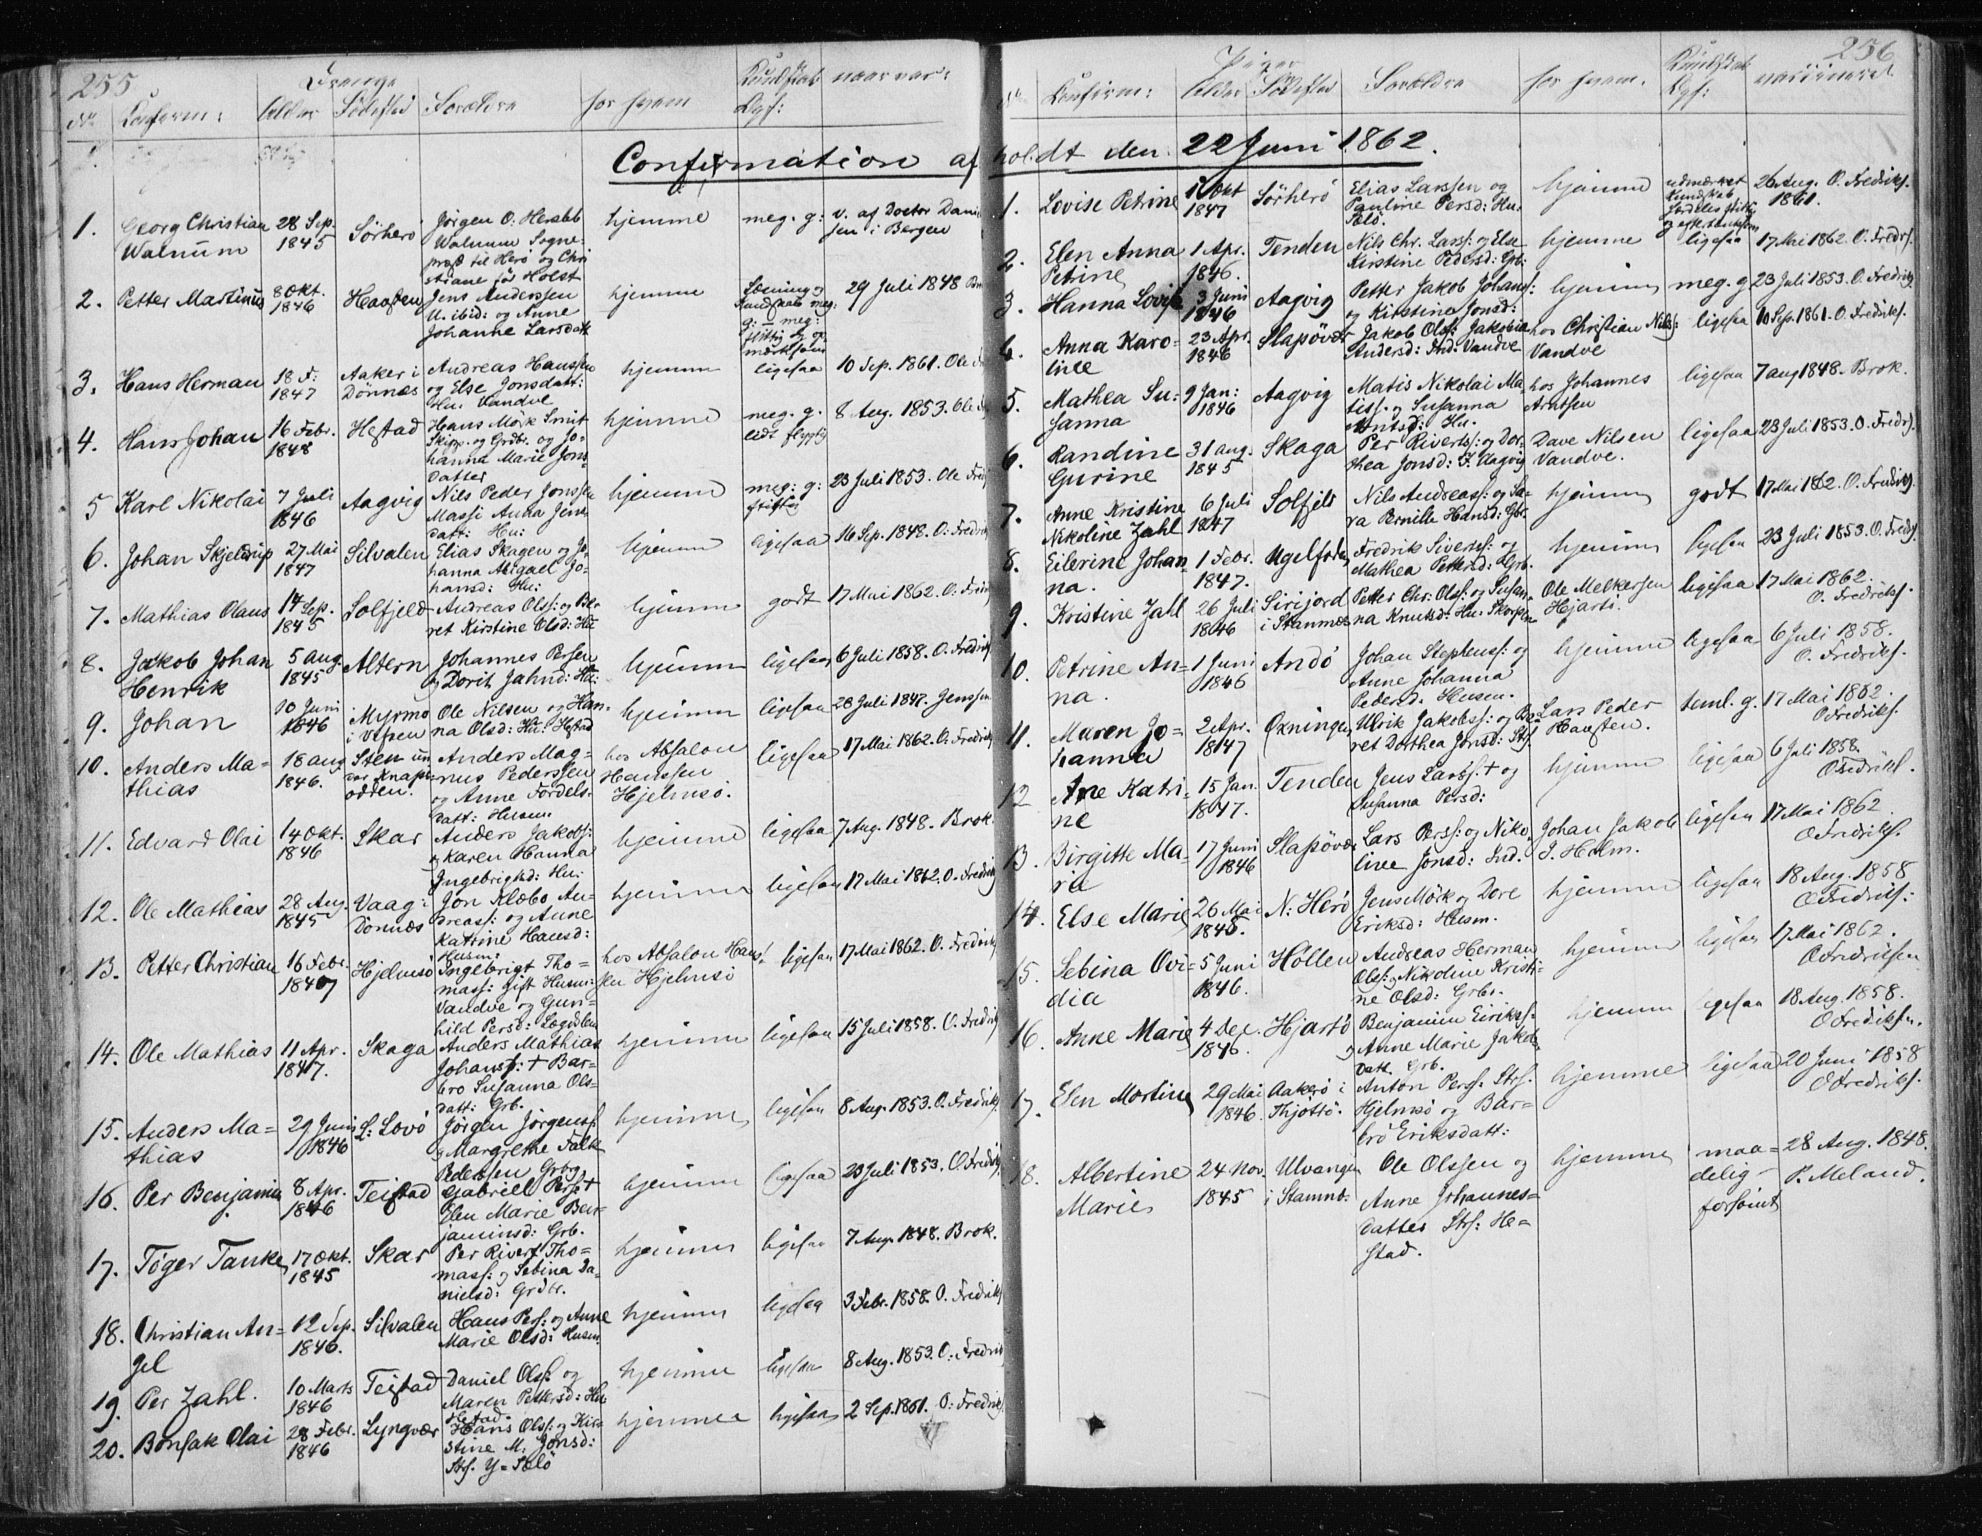 255
Drenge
No Confirm: Alder Födested Forældre for hvem Kundskab Lgf: naar vac:
Confirmation af
1. Georg Christian Walnum 28 Sep. 1845 Sörherö Jörgen O: Hersleb Walnum Sogne-præst til Herö og Christiane før Holst hjemme meg. g: v. af Doctor Danielsen i Bergen
2. Petter Martinus 8 Okt. 1846 Haasten Jens Anderssen U. ibid: og Anne Johanne Larsdatt hjemme Læsning og Kundskab meg: g: – meg: flittig og opmærksom 29 Juli 1848
3. Hans Herman 18 F: 1847 Aaker i Dönnæs Andreas Hanssen og Else Jonsdatt: Hu: Vandve hjemme ligesaa 10 Sep. 1861. Ole
4. Hans Johan 16 Febr. 1848 Hestad Hans Mörk Smit Skipp. og Grdbr. og Johanna Marie Jonsdatter hjemme meg. g. lidt flygtig 8 Aug. 1853. Ole
5 Karl Nikolai 7 Juli 1846 Aagvig Nils Peder Jonssen Massi Anna Jensdatt: Hu: hjemme meg: g: flittig 23 Juli 1853. Ole Fred
6. Johan Skjelderup 27 Mai 1847 Silvalen Elias Skagen og Johanna Abigael Johansd: Hu: hjemme ligesaa 16 Sep. 1848. O: Fredrik
7. Mathias Olaus 14 Sep. 1845 Solfjeld Andreas Ols: og Beret Kirstine Olsd: Hu hjemme godt 17 Mai 1862. O: Fredr
8. Jakob Johan Henrik 5 Aug. 1845 Altern Johannes Persen og Dorit Jahnd: Hu: hjemme ligesaa 6 Juli 1858. O. Fredrik
9. Johan 10 Juni 1846 Myrmo i Vefsen Ole Nilsen og Hanna Olsd: Hu: Hestad hjemme ligesaa 28 Juli 1847. Jenssen
10. Anders Mathias 18 Aug 1846. Sten un var Knapodden. Anders Magnus Pederssen og Anne Fordelsdatt: Husm hos Absalon Hanssen Hjelmsö. ligesaa 17 Mai 1862. O. Fredrik
11. Edvard Olai 14 Okt. 1846 Skar Anders Jakobs: og Karen Hanna Ingebrigtsd: Hu: hjemme ligesaa 7 Aug. 1848. Brok.
12. Ole Mathias 28 Aug. 1845 Vaag: Dönnæs Jon Klæbo Andreass: og Anne Katrine Hansd: Husm: hjemme ligesaa 17 Mai 1862. O. Fredrik
13. Petter Christian 16 Febr. 1847 Hjelmsö Ingebrigt Thomass: Gift Husm: Vandve og Gunhild Persd: Lægdslem hos Absalon Hanssen Hjelmsö ligesaa 17 Mai 1862. O. Fredrik
14. Ole Mathias 11 Apr. 1847. Skaga Anders Mathias Johanss: + Barbro Susanna Olsdatt: Grb. hjemme ligesaa 15 Juli 1858. O. Fredrik
15. Anders Mathias 29 Juni 1846 L: Lovö Jörgen Jörgenss og Margrethe Falk Pederssen Grbr. hjemme ligesaa 8 Aug. 1853. O. Fredrik
16. Per Benjamin 8 Apr. 1846 Teistad Gabriel Pers + Elen Marie Benjaminsd: Grb. hjemme ligesaa 23 Juli 1853. O Fredrik
17. Töger Tanke 17 Okt. 1845 Skar Per Rivert Thomass: og Sebina Danielsd: Grdbr. hjemme ligesaa 7 Aug. 1848. Brok.
18. Christian Angel 12 Sep. 1846. Silvalen Hans Pers: og Anne Marie Olsd: Husm hjemme ligesaa 3 Febr. 1858. O. Fredrik
19. Per Zahl. 10 Marts 1846 Teistad Daniel Ols: og Maren Pettersd: Hu: Hestad. hjemme ligesaa 8 Aug. 1853. O: Fredrik
20. Bonsak Olai 28 Febr. 1846 Lyngvær Hans Ols: og Kirstine M. Jonsd: Strf. Y=Tælö hjemme ligesaa 2 Sep. 1861. O: Fredrik
256
Piger
No Confirm: Alder Födested Forældre for hvem. Kundskab Lgf: vaccineret
holdt den 22 Juni 1862.
1. Lovise Petrine 1 Okt 1847 Sörherö Elias Larssen og Pauline Persd: Hu. Tælö. hjemme udmærket Kundskab særdeles flittig og eftertænksom 26 Aug. 1861. O. Fredriks.
2. Elen Anna Petrine 1 Apr. 1846. Tenden Nils Chr. Larss: og Else Kirstine Pedersd: Grb: hjemme ligesaa 17 Mai 1862. O. Fredrs.
3. Hanna Lovise 3 Juni 1846 Aagvig Petter Jakob Johans: og Kirstine Jonsd: hjemme meg. g 23 Juli 1853. O. Fredrik
4. Anna Karoline 23 Apr. 1846 Slapövær Jakob Ols: Jakobia Andersd: Ind. Vandve hos Christian Nils: Vandve ligesaa 10 Sep. 1861. O. Fredriks.
5. Mathea Susanna 9 Jan: 1846 Aagvig Matis Nikolai Matiss: og Susanna Arntsd: Hu. hos Johannes Arntsen ligesaa 7 aug 1848. Brok.
6. Randine Gurine 31 aug. 1845 Skaga Per Riverts: og Dorthea Jonsd: F. Aagvig Dave Nilsen Vandve. ligesaa 23 Juli 1853. O. Fredrs.
7. Anne Kristine Nikoline Zahl 6 Juli 1847 Solfjeld Nils Andreass: og Sara Pernille Hansd: Gbr. hjemme godt 17 Mai 1862. O. Fredrik
8. Eilerine Johanna. 1 Febr. 1847. Ugelfoden Fredrik Siverts: og Mathea Pettersd: Grb. hjemme ligesaa 23 Juli 1853. O. Fredrs.
9. Kristine Zahl 26 Juli 1846 Sirijord i Stamnes Petter Chr. Ols: og Susanna Knutsd: Hu. Skorpen Ole Melkersen Hjartö. ligesaa 17 Mai 1862. O. Fredriks.
10. Petrine Anna. 1 Juni 1846 Andö Johan Stephens: og Anne Johanna Pedersd. Husm. hjemme ligesaa 6 Juli 1858. O. Fredriks.
11. Maren Johanna 2 Apr. 1847 Oxningen Ulrik Jakobss: og Beret Dorthea Jonsd: Strf. Lars Peder Haasten. teml. g. 17 Mai 1862. O Fredriks.
12 Ane Katrine 15 Jan. 1847. Tenden Jens Larss: + og Susanna Persd: hjemme ligesaa 6 Juli 1858. O Fredriks.
13. Birgitte Maria 17 Juni 1846 Slapövær Lars Pers: og Nikoline Jonsd: Ind. Johan Jakob I. Holm. ligesaa 17 Mai 1862 O Fredriks.
14. Else Marie 26 Mai 1845. N. Herö Jens Mörk og Dore Eriksd: Husm. hjemme ligesaa 18 Aug. 1858 O Fredriks.
15. Sebina Ovidia 5 Juni 1846. Hollen Andreas Herman Ols: og Nikoline Kristine Olsd: Grbr. hjemme ligesaa 17 Mai 1862. O Fredriksen
16. Anne Marie 4 Dec. 1846. Hjartö Benjamin Eiriks: og Anne Marie Jakobdatt. Grb. hjemme ligesaa 18 Aug. 1858. O Fredriksn.
17. Elen Martine 29 Mai 1846. Aakerö i Thjötrö. Anton Pers: Strf. Hjelmsö og Barbrö Eriksdatt: hjemme ligesaa 20 Juni 1858 O Fredriks.
18. Albertine Marie 24 Nov. 1845 Ulvangen i Stamnæ: Ole Olssen og Anne Johannesdatter Strf: Hestad. hjemme maadelig – forsömt 28 Aug. 1848. P. Meland.